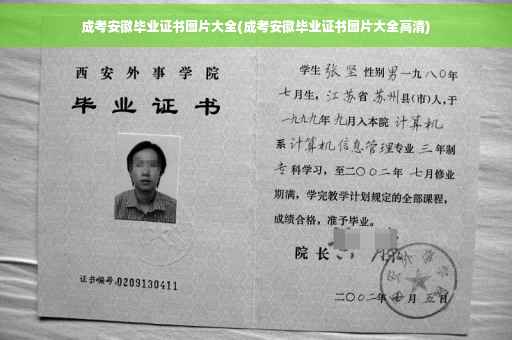 成考安徽毕业证书图片大全(成考安徽毕业证书图片大全高清)
西安外事学院
毕业证书
证书编号:0209130411
学生 张坚 性别男一九八〇年
七月生，江苏省苏州县(市)人，于
一九九九年九月入本院 计算机
系 计算机信息管理专业 三 年制
专科学习，至二〇〇二年 七月修业
期满，学完教学计划规定的全部课程，
成绩合格，准予毕业。
院长
二〇〇二年 月 五日